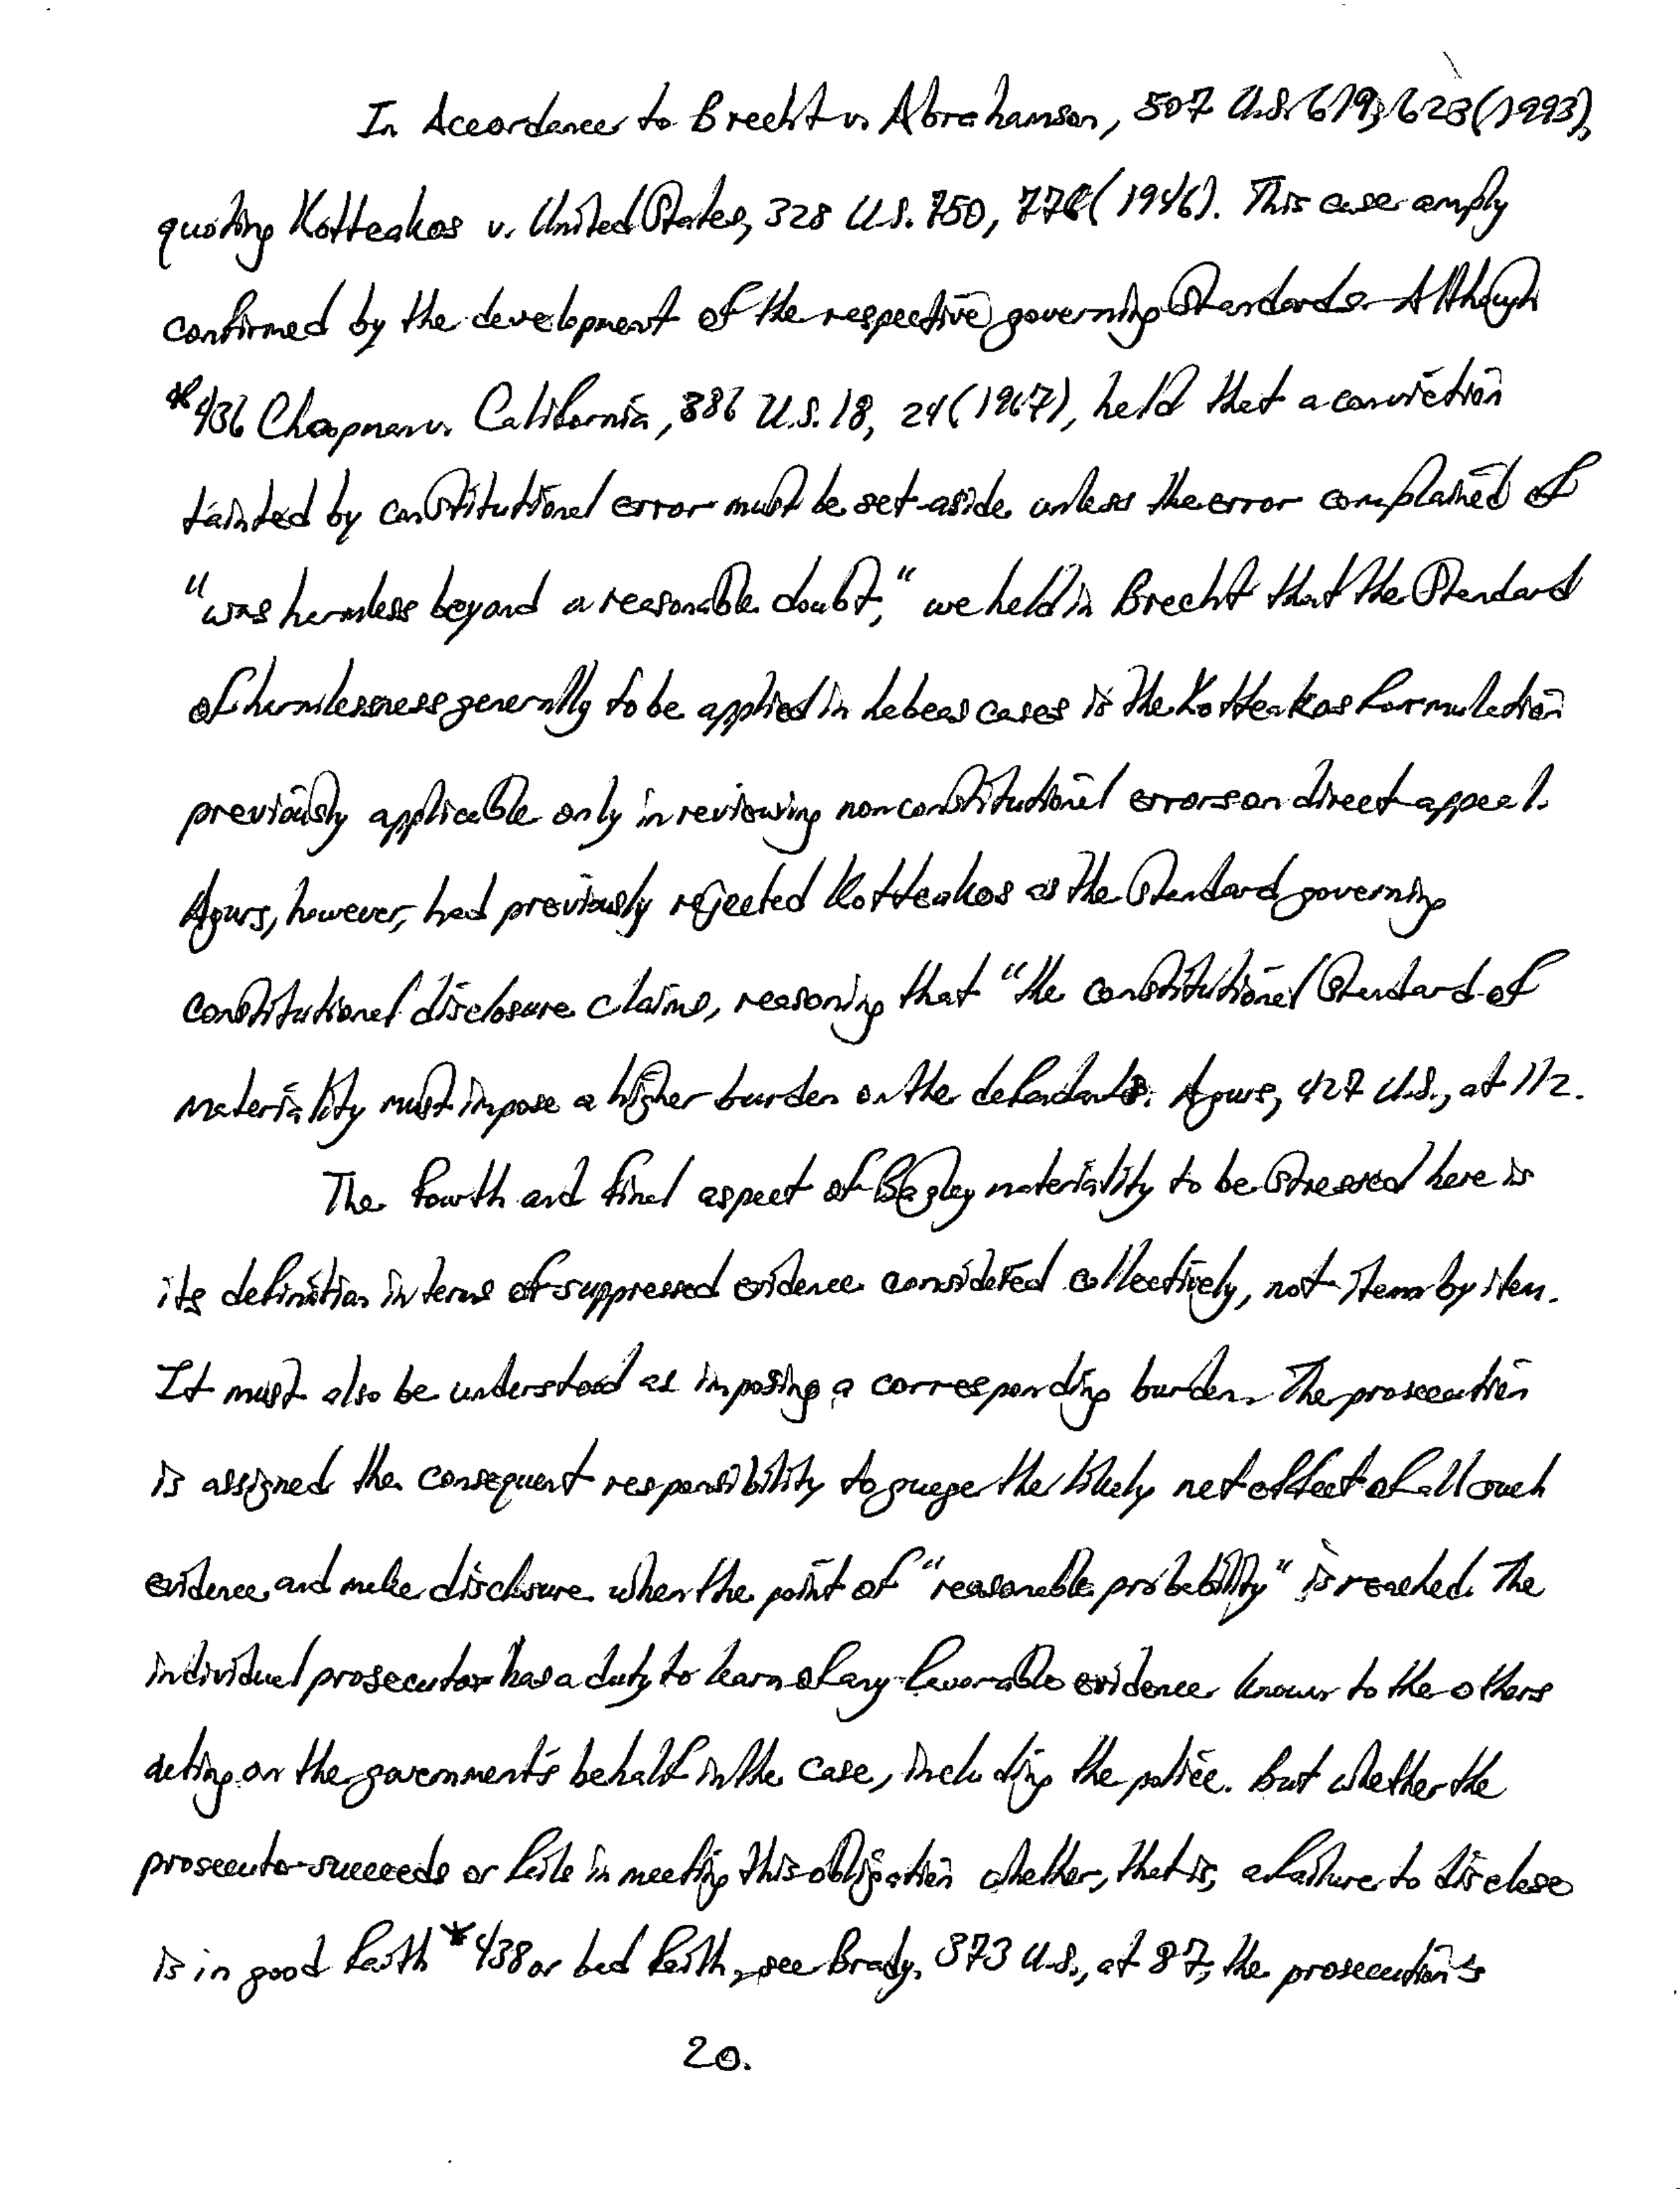 In Accordance to Brecht v. Abrahamson, 507 U.S. 619, 623 (1993),
quoting Kotteakos v. United States, 328 U.S. 750, 776 (1946). This case amply
confirmed by the development of the respective governing standards. Although
*436 Chapman v. California, 386 U.S. 18, 24 (1967), held that a conviction
tainted by constitutional error must be set-aside unless the error complained of
"was harmless beyond a reasonable doubt," we held in Brecht that the standard
of harmlessness generally to be applied in habeas cases is the Kotteakos formulation
previously applicable only in reviewing nonconstitutional errors on direct appeal.
Agurs, however, had previously rejected Kotteakos as the standard governing
constitutional disclosure claims, reasoning that "the constitutional standard of
materiality must impose a higher burden on the defendants. Agurs, 427 U.S., at 112.
The fourth and final aspect of Bagley materiality to be stressed here is
its definition in terms of suppressed evidence considered collectively, not item by item.
It must also be understood as imposing a corresponding burden. The prosecution
is assigned the consequent responsibility to guege the likely net effect of all such
evidence and make disclosure when the point of "reasonable probability" is reached. The
individual prosecutor has a duty to learn of any favorable evidence known to the others
acting on the government's behalf in the case, including the police. But whether the
prosecutor succeeds or fails in meeting this obligation whether, that is, a failure to disclose
is in good faith *438 or bad faith, see Brady, 373 U.S., at 87, the prosecution's
20.